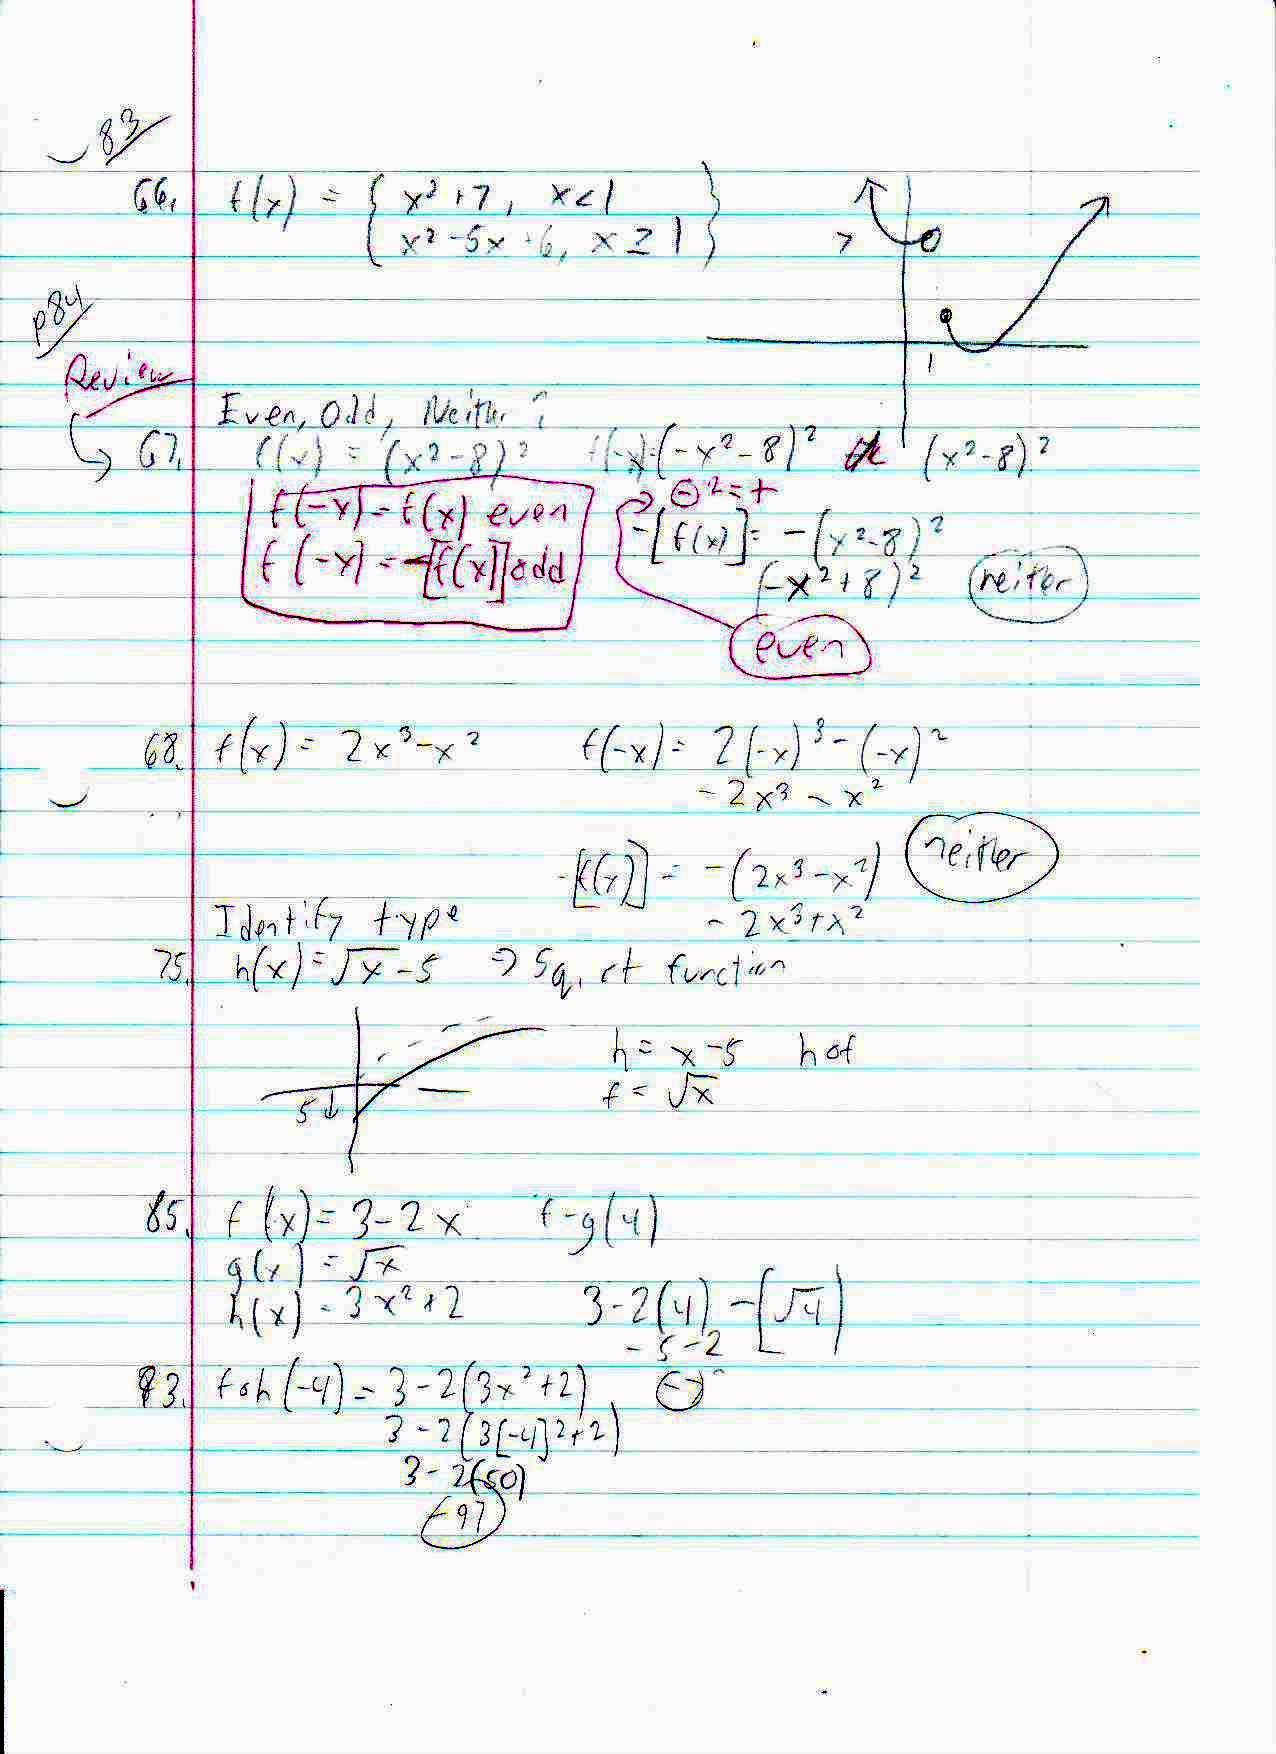 83
66. f(x) = { x²+7, x<1
x²-5x+6, x≥1 }
7
1
p84
Review
Even, Odd, Neither?
67. f(x) = (x²-8)² f(-x)=(-x²-8)² (x²-8)²
f(-x)=f(x) even
f(-x)=-[f(x)] odd
→ ⊖²=+
-[f(x)]= -(x²-8)²
(-x²+8)² neiter
even
68. f(x)= 2x³-x² f(-x)= 2(-x)³-(-x)²
-2x³-x²
-[f(x)] = -(2x³-x²) neither
-2x³+x²
Identify type
75. h(x)=√x-5 ⇒ Sq. rt function
h= x-5 hof
f= √x
5↓
85. f(x)=3-2x f-g(4)
g(x)=√x
h(x)=3x²+2 3-2(4)-[√4]
-5-2
93. foh(-4)= 3-2(3x²+2) (-7)
3-2(3[-4]²+2)
3-2(50)
-97